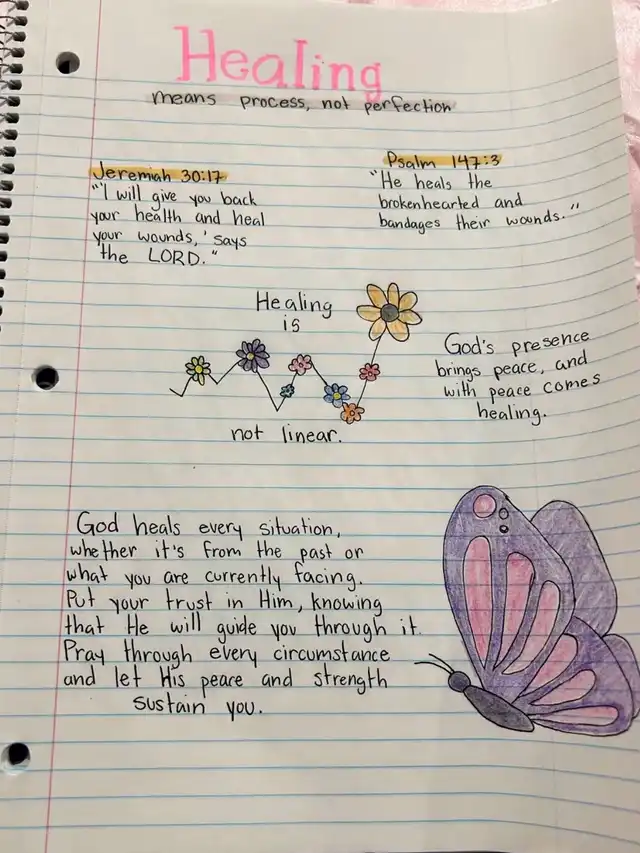 Healing
means process, not perfection
Jeremiah 30:17
"'I will give you back
your health and heal
your wounds,' says
the LORD."
Psalm 147:3
"He heals the
brokenhearted and
bandages their wounds."
Healing
is
not linear.
God's presence
brings peace, and
with peace comes
healing.
God heals every situation,
whether it's from the past or
what you are currently facing.
Put your trust in Him, knowing
that He will guide you through it.
Pray through every circumstance
and let His peace and strength
sustain you.